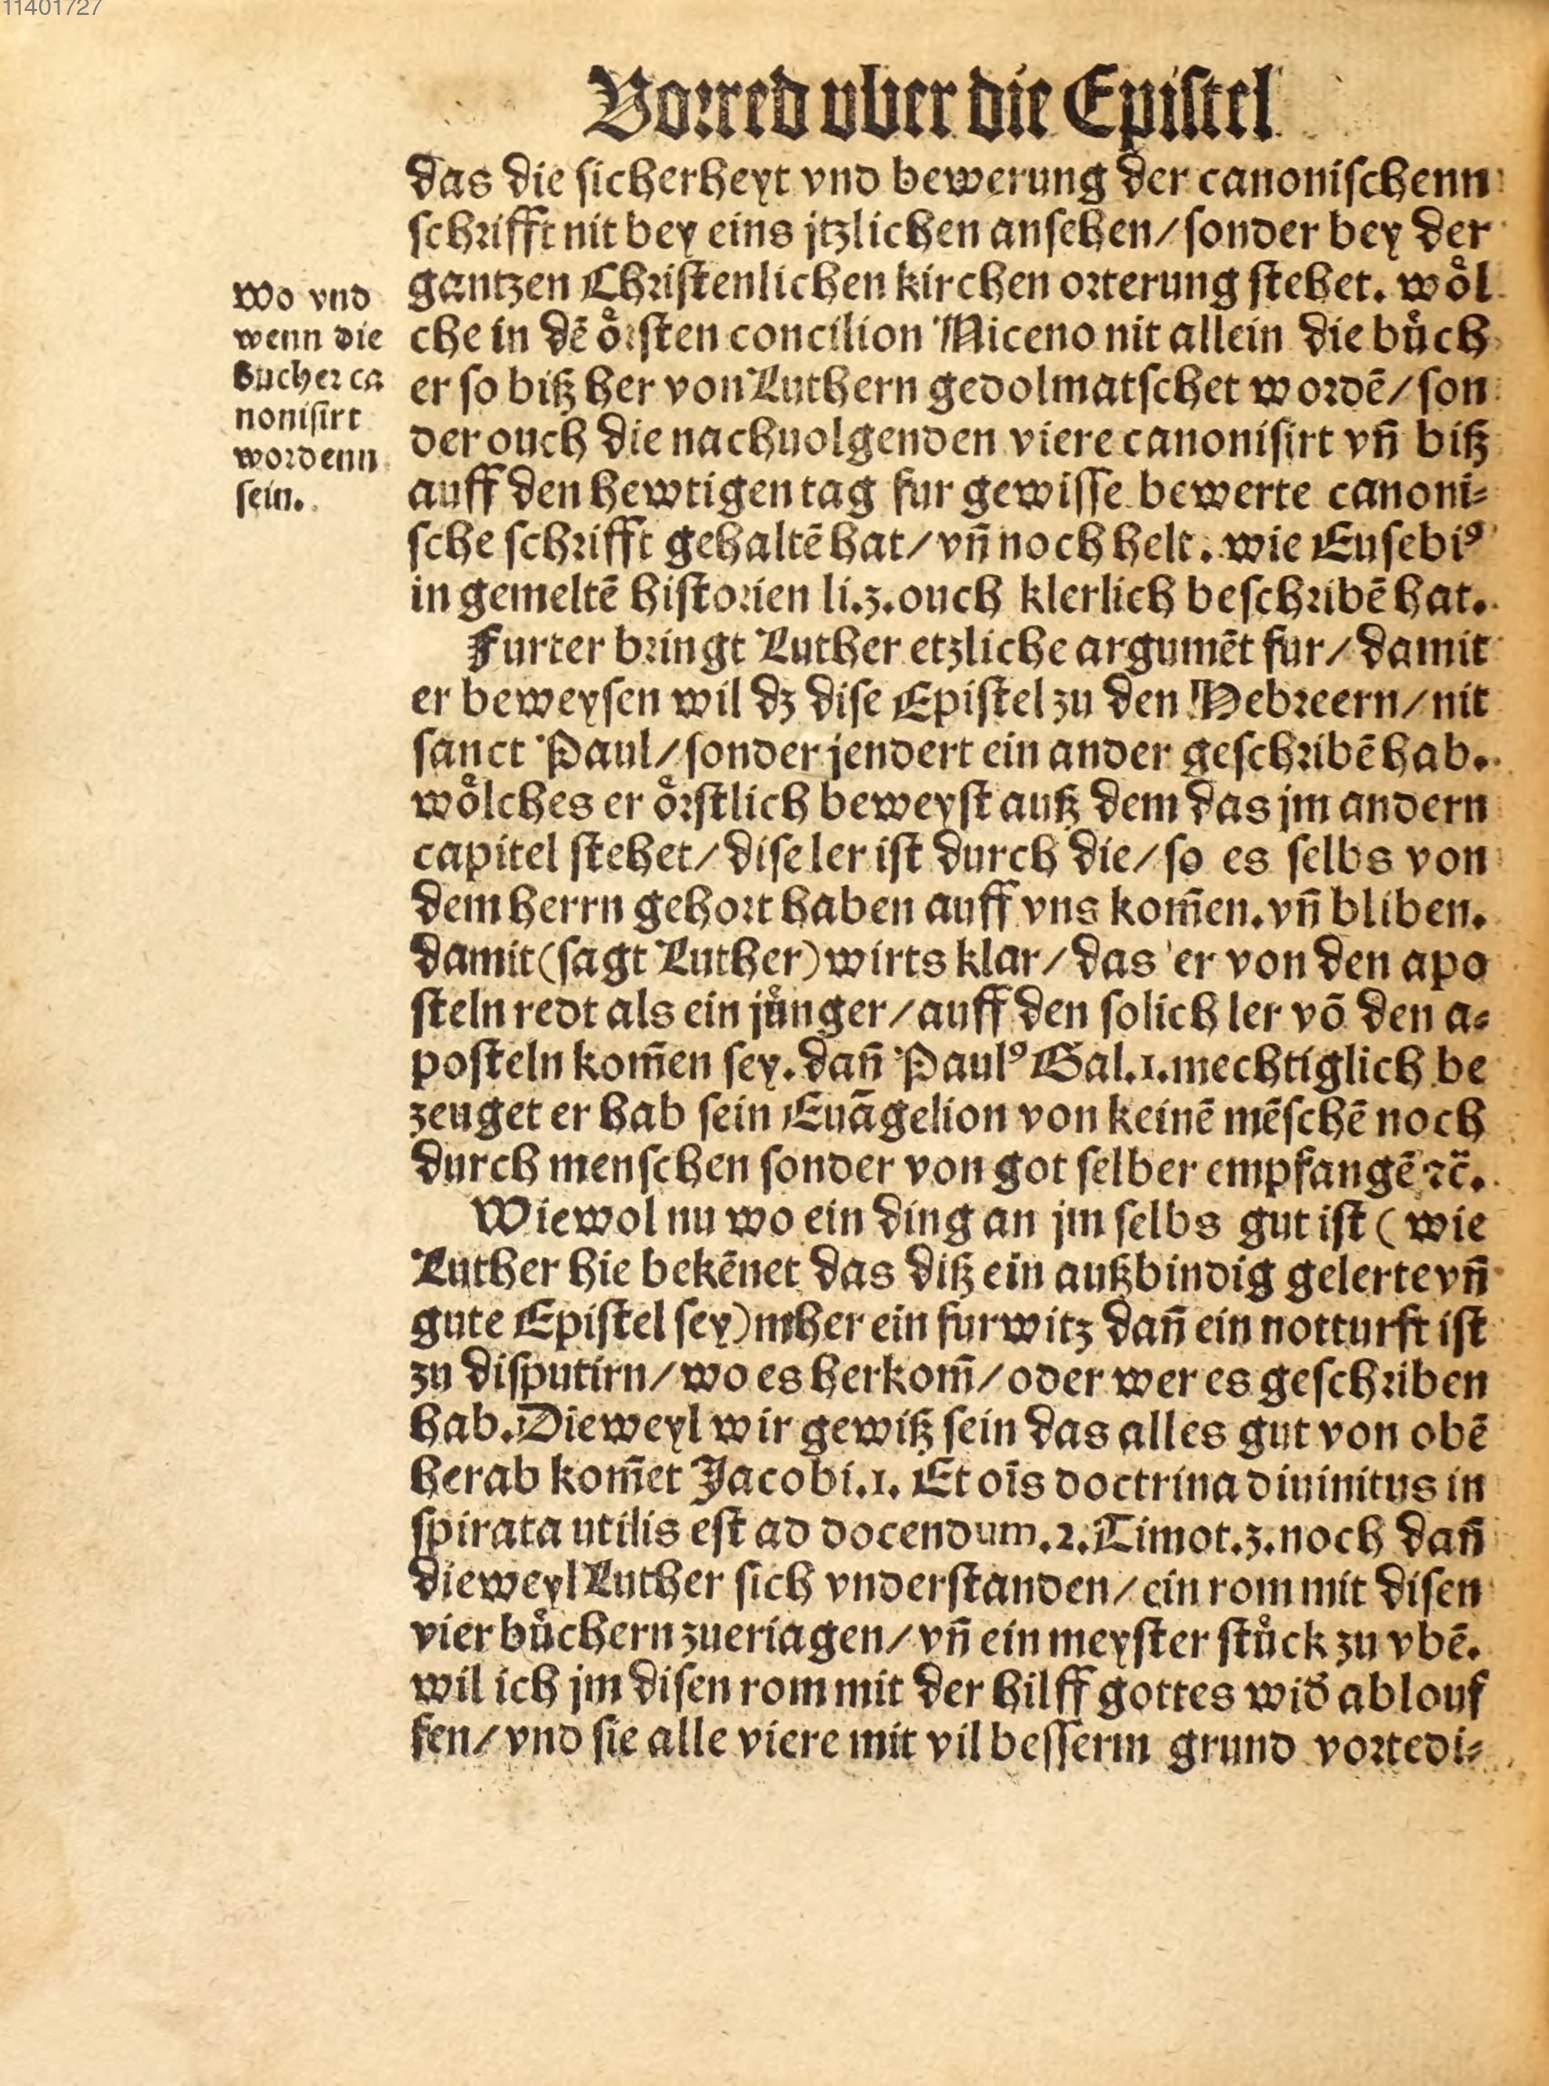 11401727
Vorred vber die Epistel
das die sicherheyt vnd bewerung der canonischenn
schrifft nit bey eins jtzlichen ansehen/sonder bey der
gantzen Christenlichen kirchen orterung stehet. woͤl
che in dē oͤrsten concilion Niceno nit allein die buͤch
er so biß her von Luthern gedolmatschet wordē/son
der ouch die nachuolgenden viere canonisirt vn̄ biß
auff den hewtigen tag fur gewisse bewerte canoni⸗
sche schrifft gehaltē hat/vn̄ noch helt. wie Eusebiꝰ
in gemeltē historien li.3.ouch klerlich beschribē hat.
Wo vnd
wenn die
bucher ca
nonisirt
wordenn
sein.
Furter bringt Luther etzliche argumēt fur/damit
er beweysen wil dz dise Epistel zu den Hebreern/nit
sanct Paul/sonder jendert ein ander geschribē hab.
woͤlches er oͤrstlich beweyst auß dem das jm andern
capitel stehet/dise ler ist durch die/so es selbs von
dem herrn gehort haben auff vns kom̄en.vn̄ bliben.
damit(sagt Luther)wirts klar/das er von den apo
steln redt als ein juͤnger/auff den solich ler vō den a⸗
posteln kom̄en sey.dan̄ Paulꝰ Gal.1.mechtiglich be
zeuget er hab sein Euāgelion von keinē mēschē noch
durch menschen sonder von got selber empfangē ꝛc̄.
Wiewol nu wo ein ding an jm selbs gut ist (wie
Luther hie bekēnet das diß ein außbindig gelerte vn̄
gute Epistel sey)mher ein furwitz dan̄ ein notturft ist
zu disputirn/wo es herkom̄/oder wer es geschriben
hab.Dieweyl wir gewiß sein das alles gut von obē
herab kom̄et Jacobi.1. Et oīs doctrina diuinitus in
spirata utilis est ad docendum.2.Timot.3.noch dan̄
dieweyl Luther sich vnderstanden/ein rom mit disen
vier buͤchern zueriagen/vn̄ ein meyster stuͤck zu vbē.
wil ich jm disen rom mit der hilff gottes wid̄ ablouf
fen/vnd sie alle viere mit vil besserm grund vortedi⸗